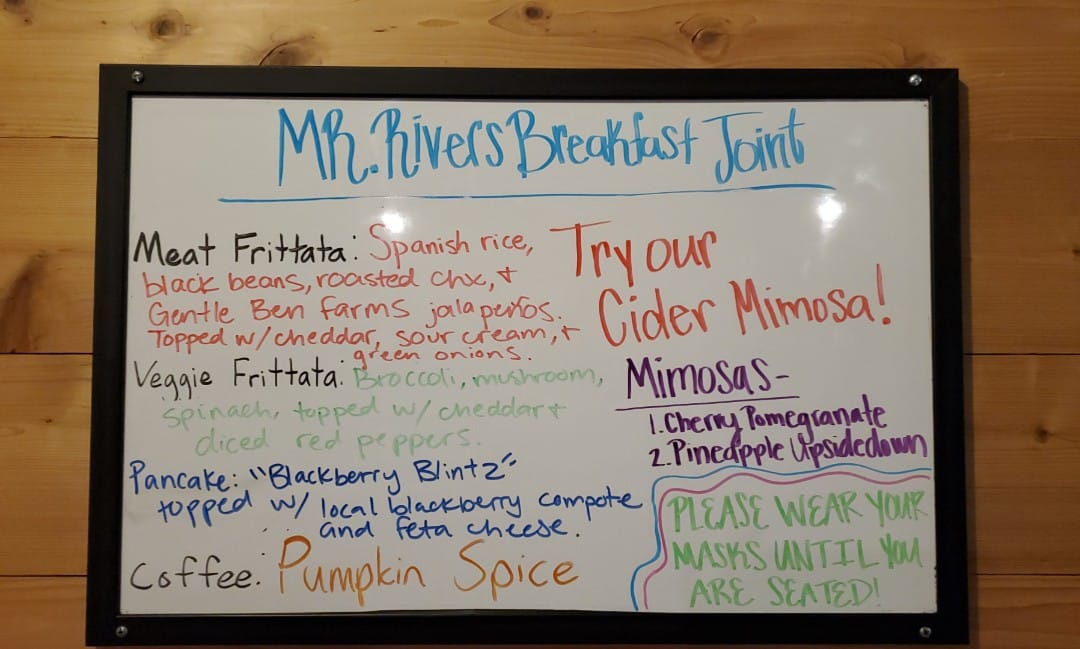 MR. Rivers Breakfast Joint
Meat Frittata: Spanish rice,
black beans, roasted chx, +
Gentle Ben Farms jalapeños.
Topped w/ cheddar, sour cream, +
green onions.
Veggie Frittata: Broccoli, mushroom,
spinach, topped w/ cheddar +
diced red peppers.
Pancake: "Blackberry Blintz"
topped w/ local blackberry compote
and feta cheese.
Coffee: Pumpkin Spice
Try our
Cider Mimosa!
Mimosas-
1. Cherry Pomegranate
2. Pineapple Upsidedown
PLEASE WEAR YOUR
MASKS UNTIL YOU
ARE SEATED!